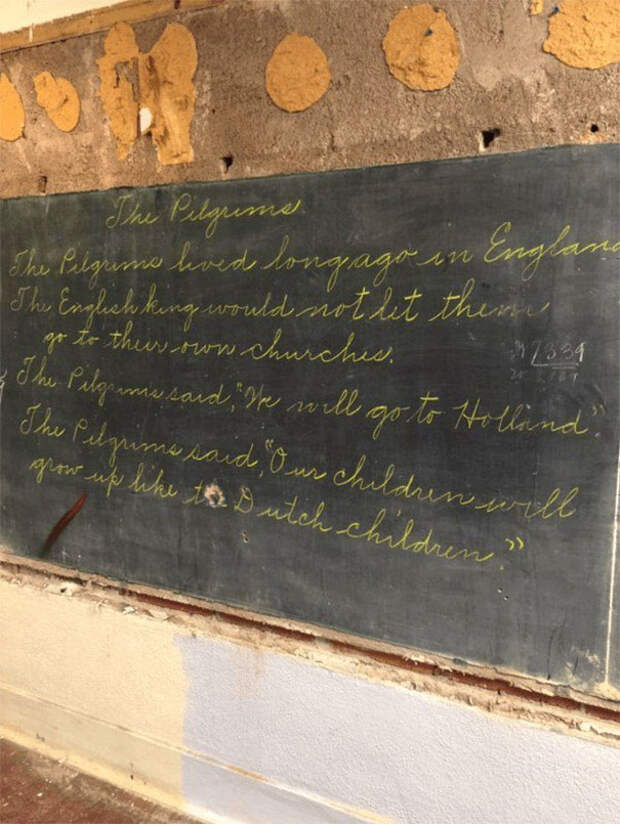 The Pilgrims.
The Pilgrims lived long ago in England
The English king would not let them
go to their own churches.
The Pilgrims said, "We will go to Holland"
The Pilgrims said, "Our children will
grow up like the Dutch children."